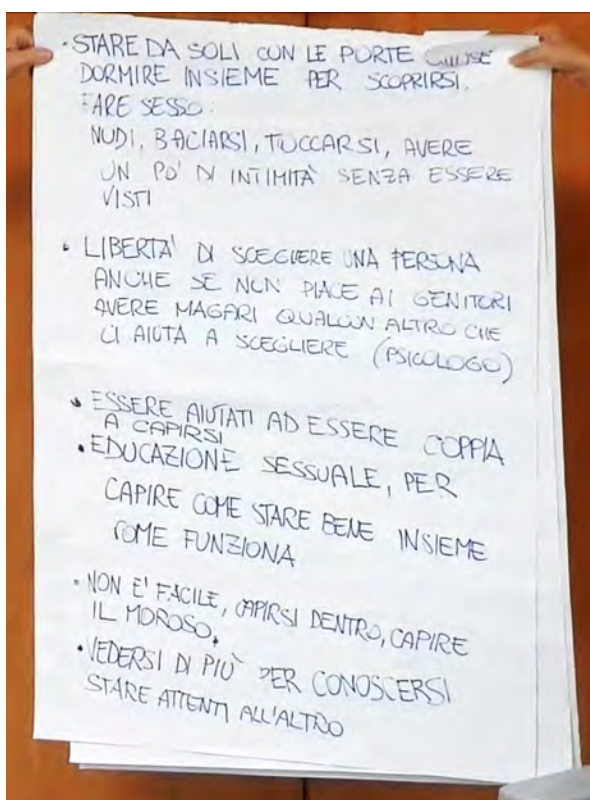 • STARE DA SOLI CON LE PORTE CHIUSE
DORMIRE INSIEME PER SCOPRIRSI.
FARE SESSO:
NUDI, BACIARSI, TOCCARSI, AVERE
UN PO' DI INTIMITÀ SENZA ESSERE
VISTI
• LIBERTA' DI SCEGLIERE UNA PERSONA
ANCHE SE NON PIACE AI GENITORI
AVERE MAGARI QUALCUN ALTRO CHE
CI AIUTA A SCEGLIERE (PSICOLOGO)
• ESSERE AIUTATI AD ESSERE COPPIA
A CAPIRSI
• EDUCAZIONE SESSUALE, PER
CAPIRE COME STARE BENE INSIEME
COME FUNZIONA
• NON E' FACILE, CAPIRSI DENTRO, CAPIRE
IL MOROSO.
• VEDERSI DI PIÙ PER CONOSCERSI
STARE ATTENTI ALL'ALTRO